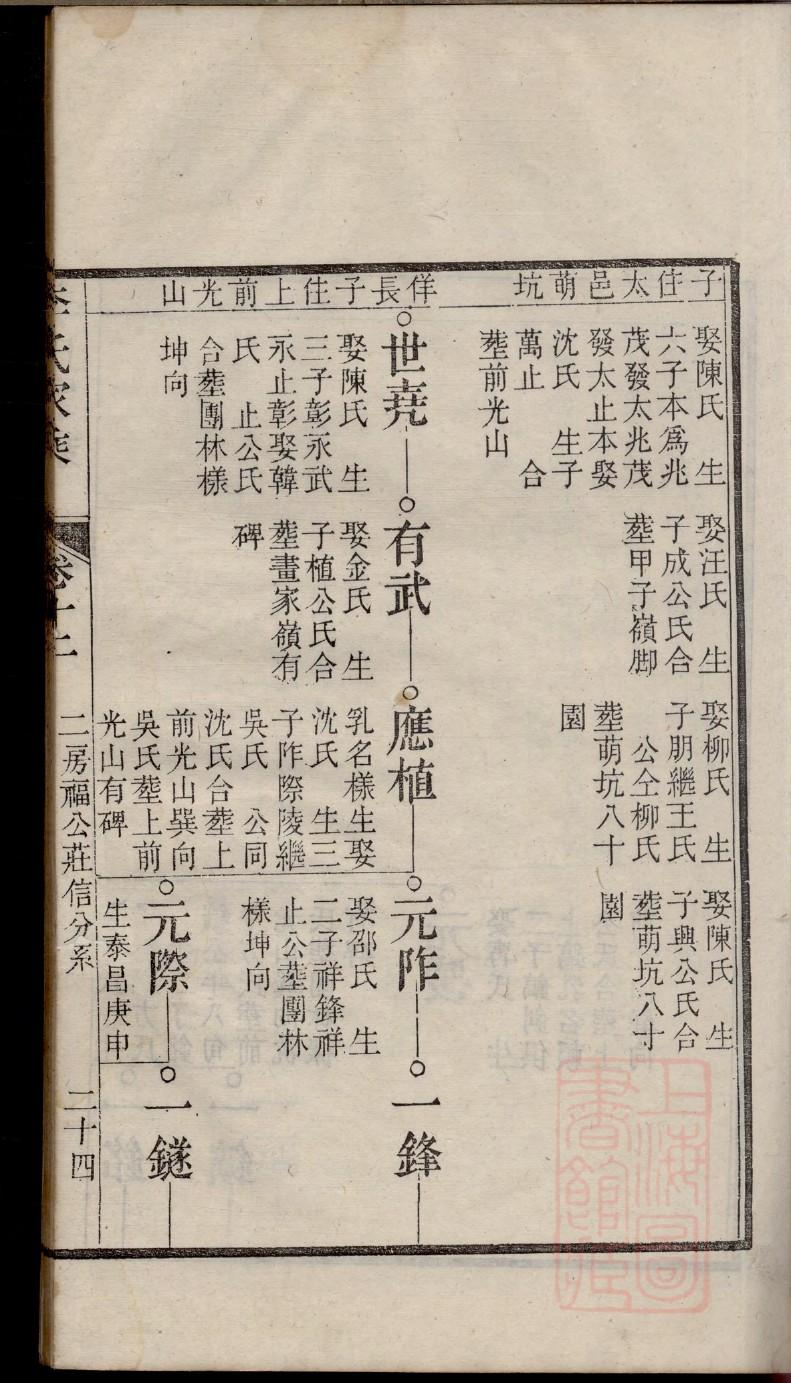 子住太邑萌坑
佯長子住上前光山
娶陳氏　生
六子本爲兆
茂發太兆茂
發太止本娶
沈氏　生子
萬止　　合
塟前光山
娶汪氏　生
子成公氏合
塟甲子嶺脚
娶柳氏　生
子朋繼王氏
公仝柳氏
塟萌坑八十
園
娶陳氏　生
子興公氏合
塟萌坑八寸
園
世堯
娶陳氏　生
三子彰永武
永止彰娶韓
氏　止公氏
合塟團林樣
坤向
有武
娶金氏　生
子植公氏合
塟畫家嶺有
碑
應植
乳名樣生娶
沈氏　生三
子阼際陵繼
吳氏　公同
沈氏合塟上
前光山巽向
吳氏塟上前
光山有碑
元阼
娶邵氏　生
二子祥鋒祥
止公塟團林
樣坤向
一鋒
元際
生泰昌庚申
一鐩
李氏家乘
卷十二
二房福公莊信分系
二十四
上海圖書館藏